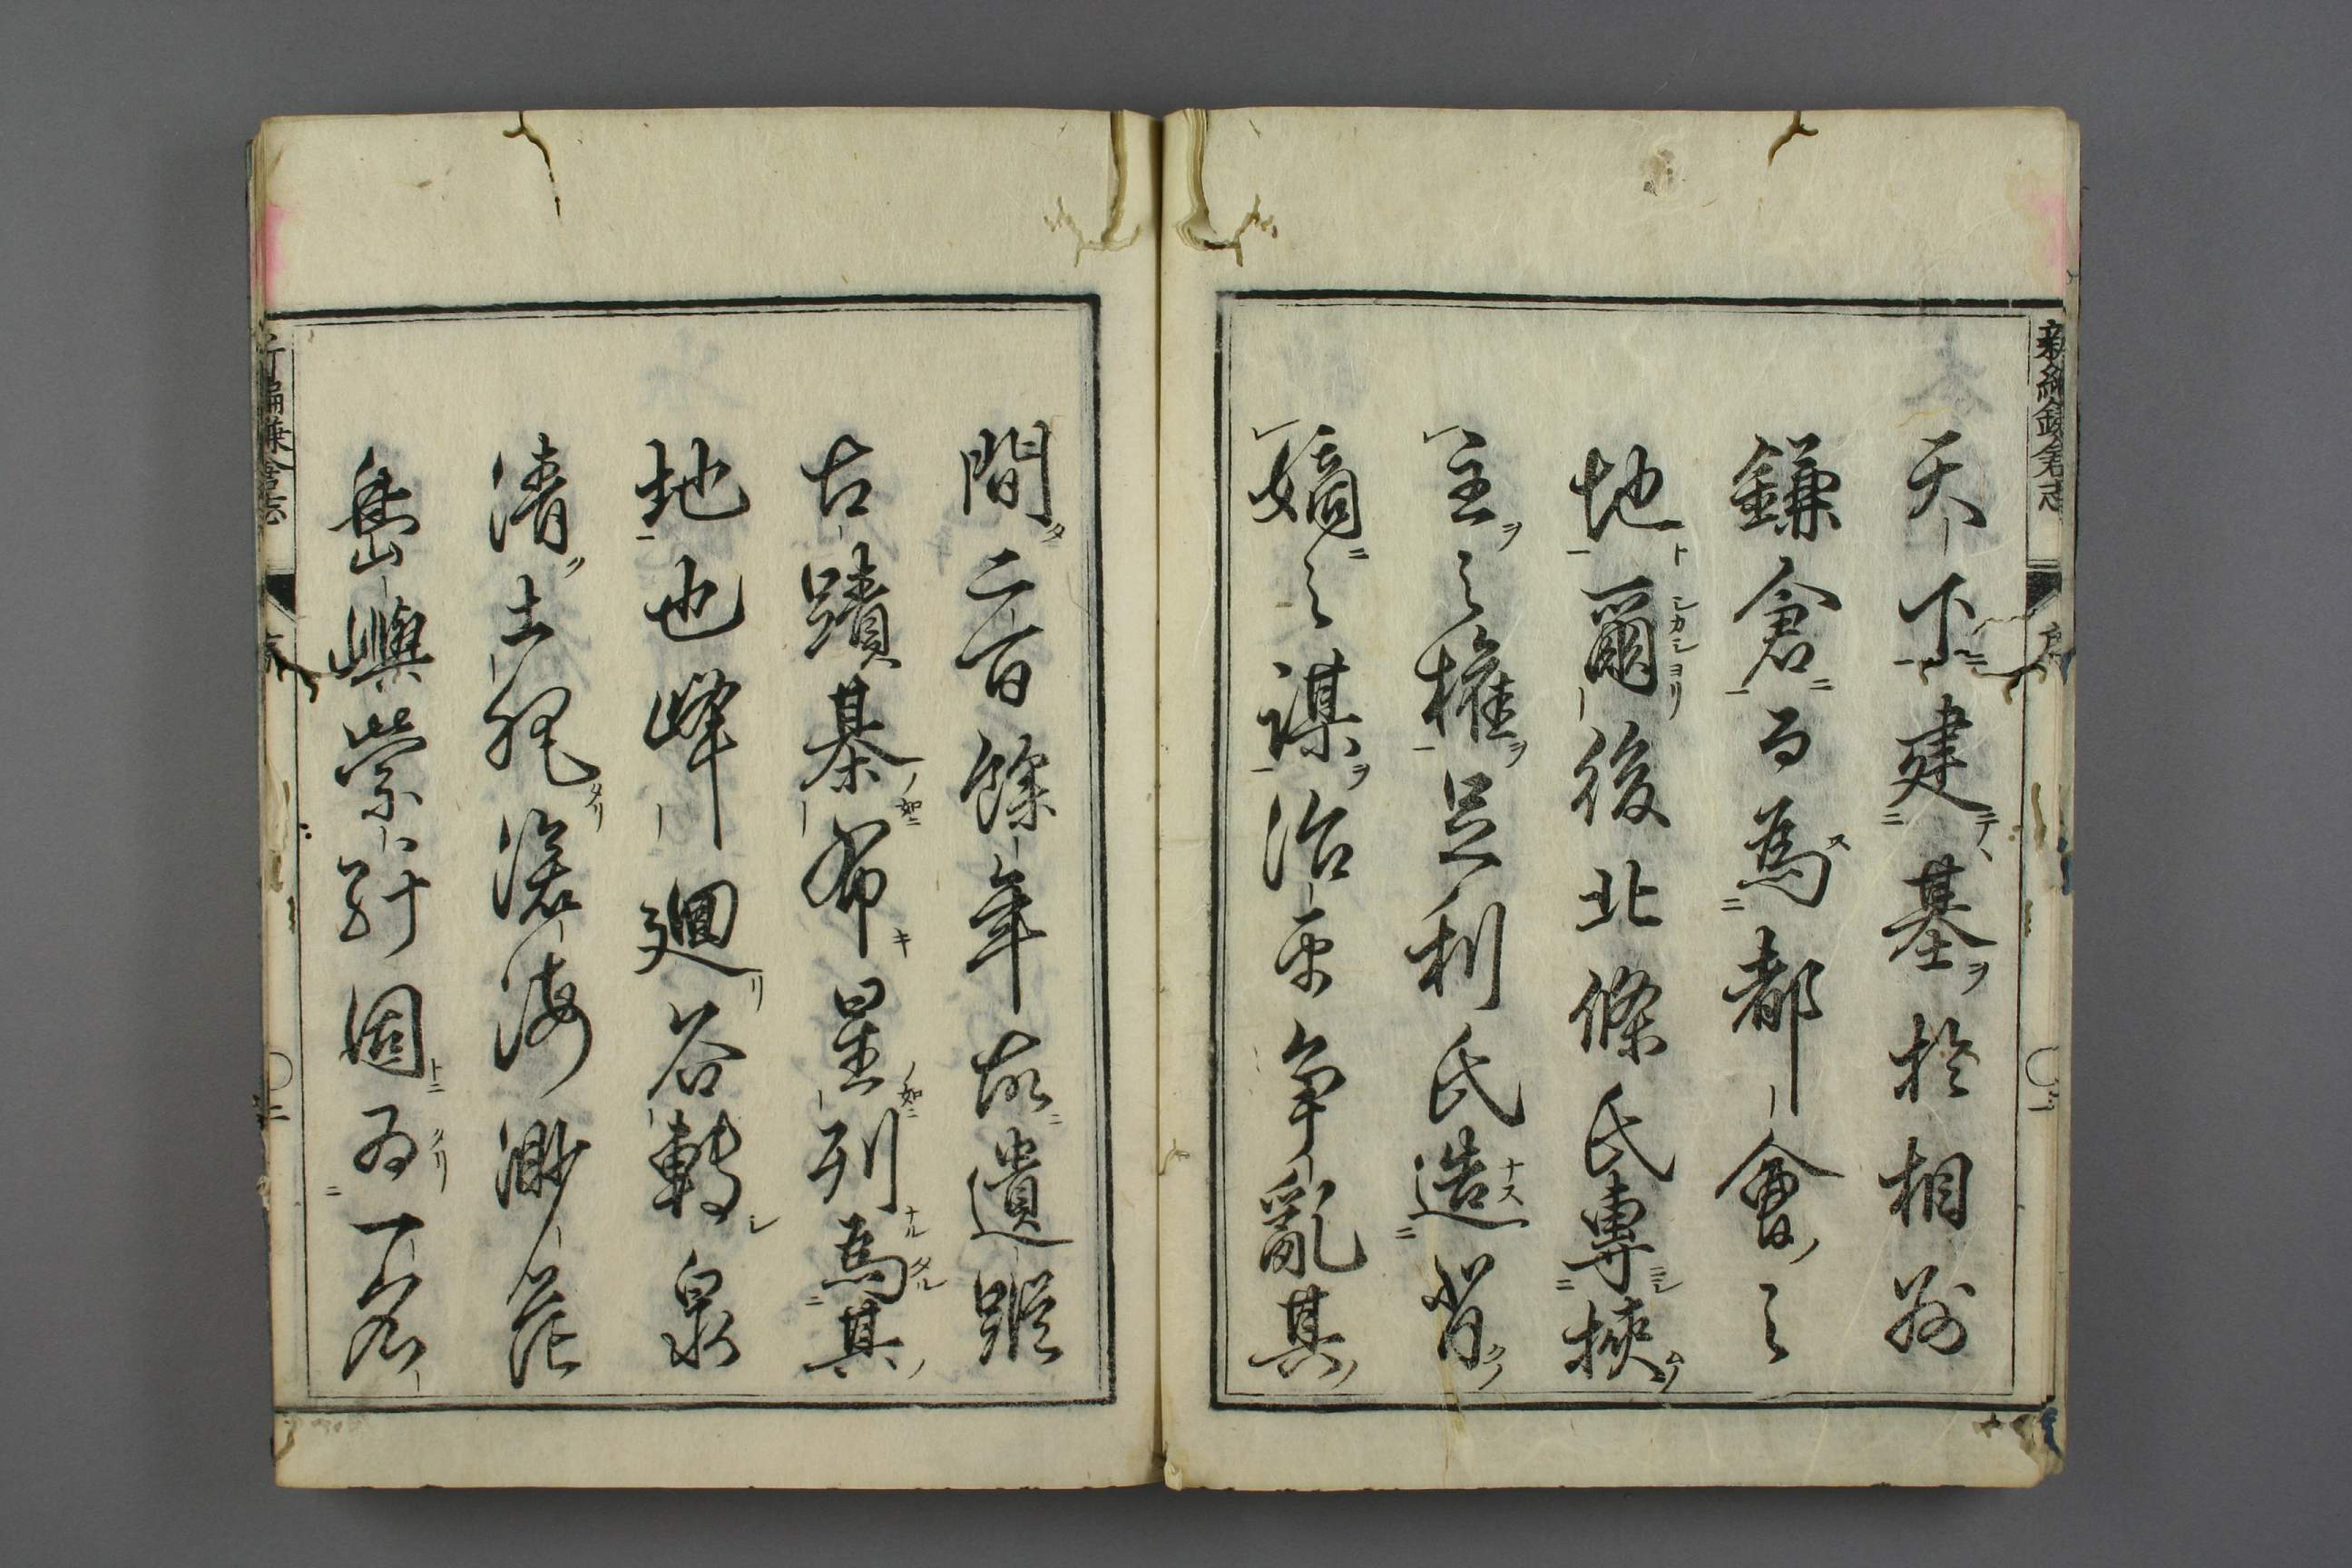 新編鎌倉志 序
天下建基於相州
鎌倉而為都會之
地爾後北條氏專挾
主之權足利氏造背
嫡之謀治平争亂其
間二百餘年故遺蹤
古蹟棊布星列為其
地也峰廻谷轉泉
清土肥滄海渺茫
嶌嶼縈紆固為一名
新編鎌倉志 序 二